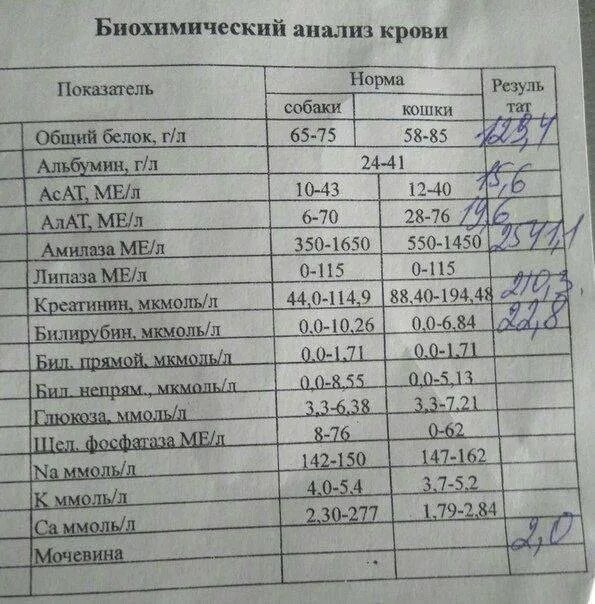 Биохимический анализ крови
Показатель Норма Резуль
собаки кошки тат
Общий белок, г/л 65-75 58-85 123,4
Альбумин, г/л 24-41
АсАТ, МЕ/л 10-43 12-40 15,6
АлАТ, МЕ/л 6-70 28-76 19,6
Амилаза МЕ/л 350-1650 550-1450 2541,1
Липаза МЕ/л 0-115 0-115
Креатинин, мкмоль/л 44,0-114,9 88.40-194,48 210,3
Билирубин, мкмоль/л 0,0-10,26 0,0-6,84 22,8
Бил. прямой, мкмоль/л 0,0-1,71 0,0-1,71
Бил. непрям., мкмоль/л 0,0-8,55 0,0-5,13
Глюкоза, ммоль/л 3,3-6,38 3,3-7,21
Щел. фосфатаза МЕ/л 8-76 0-62
Na ммоль/л 142-150 147-162
К ммоль/л 4,0-5,4 3,7-5,2
Са ммоль/л 2,30-277 1,79-2,84
Мочевина 2,0